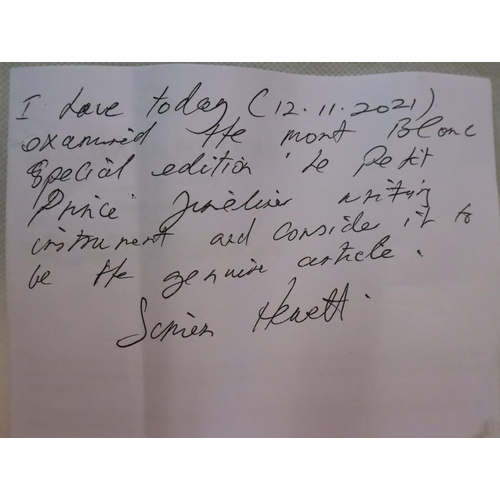 I have today (12.11.2021)
examined the mont Blanc
special edition 'Le Petit
Prince' fineliner writing
instrument and consider it to
be the genuine article.
Hewett.